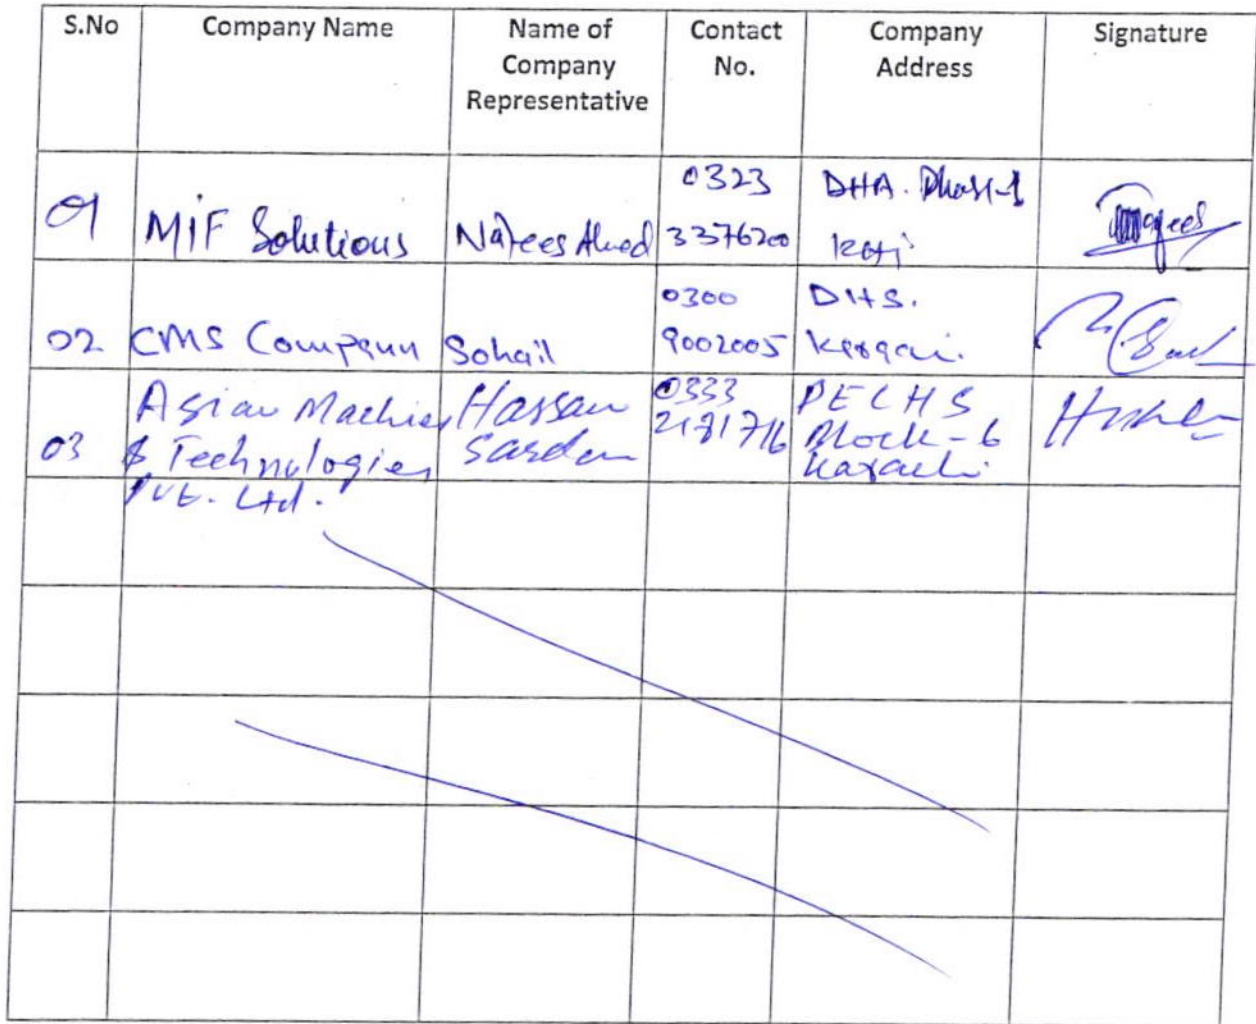 S.No Company Name Name of Company Representative Contact No. Company Address Signature
01 MIF Solutions Nafees Ahmed 0323 3376200 DHA. Phase-1
02 CMS Company Sohail 0300 9002005 DHS.
03 Asian Machies & Technologies Pvt. Ltd. Hassan 0333 PECHS Block-6 Karachi